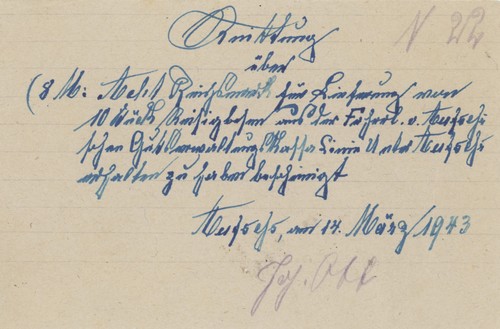 N 22
Quittung
über
(8 M: Acht Reichsmark für Lieferung von
10 Stück Reisigbesen aus der Freiherl. v. Aufseß-
schen Gutsverwaltungskassa Linie Unter Aufseß
erhalten zu haben bescheinigt
Aufseß, am 14. März 1943
Joh. Ott